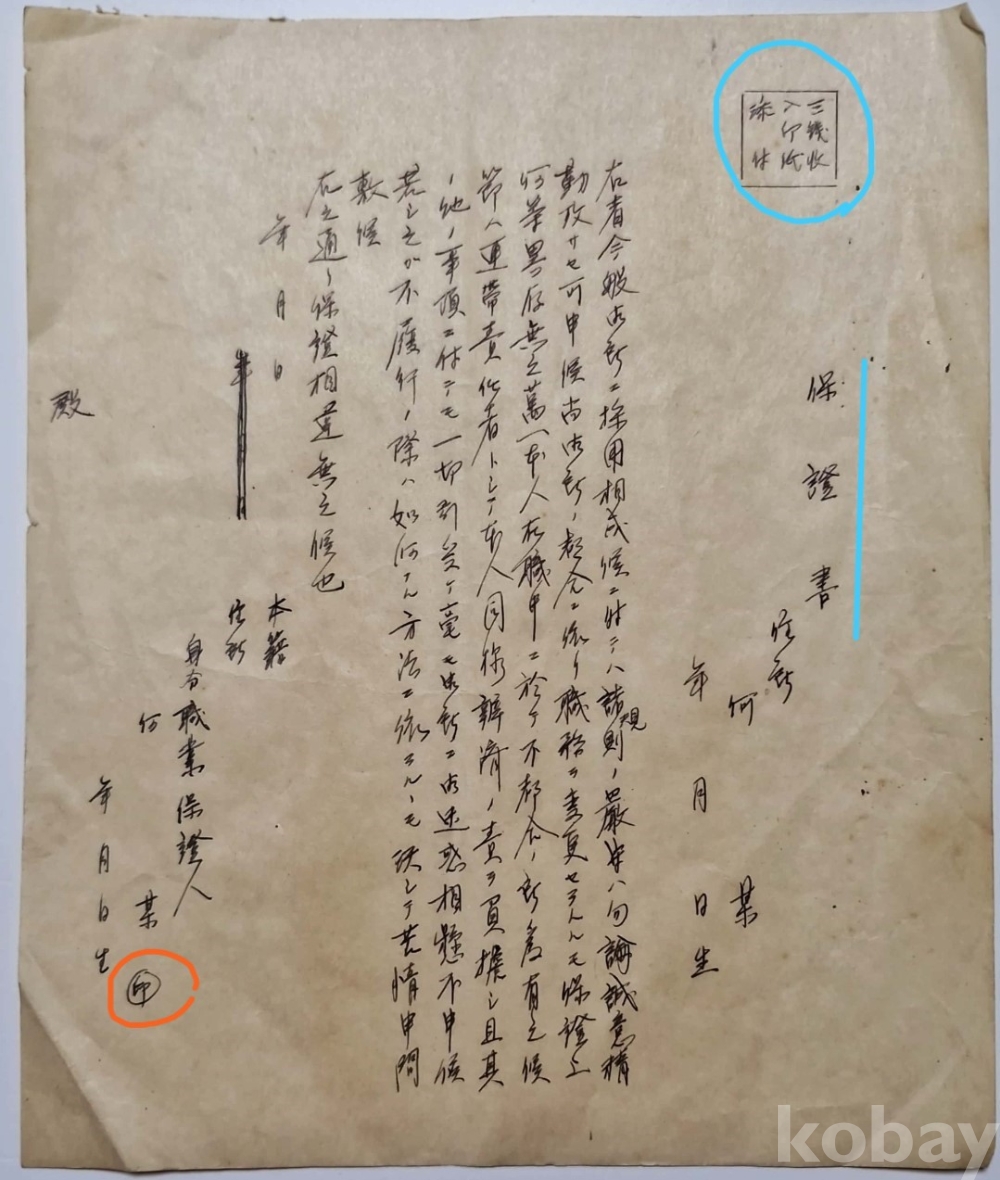 三錢收
入印紙
添付
保證書
住所
何 某
年 月 日生
右者今般御所ニ採用相成候ニ付テハ諸規則ノ嚴守ハ勿論誠意精
勤致サセ可申候尚御所ノ都合ニ依リ職務ヲ変更セラルルモ保證上
何等異存無之萬一本人在職中ニ於テ不都合ノ所為有之候
節ハ連帶責任者トシテ本人同様辨濟ノ責ヲ負擔シ且其
ノ他ノ事項ニ付テモ一切引受ケ毫モ御所ニ御迷惑相懸不申候
若シ之ガ不履行ノ際ハ如何ナル方法ニ依ラルルモ決シテ苦情申間
敷候
右之通リ保證相違無之候也
年 月 日
本籍
住所
身分職業保證人
何 某 印
年月日生
殿
kobay